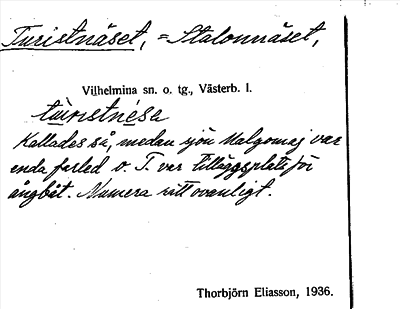 Turistnäset, = Stalonnäset,
Vilhelmina sn. o. tg., Västerb. l.
turistnesa
Kallades så, medan sjön Malgomaj var
enda farled o. T. var tilläggsplats för
ångbåt. Numera rätt ovanligt.
Thorbjörn Eliasson, 1936.